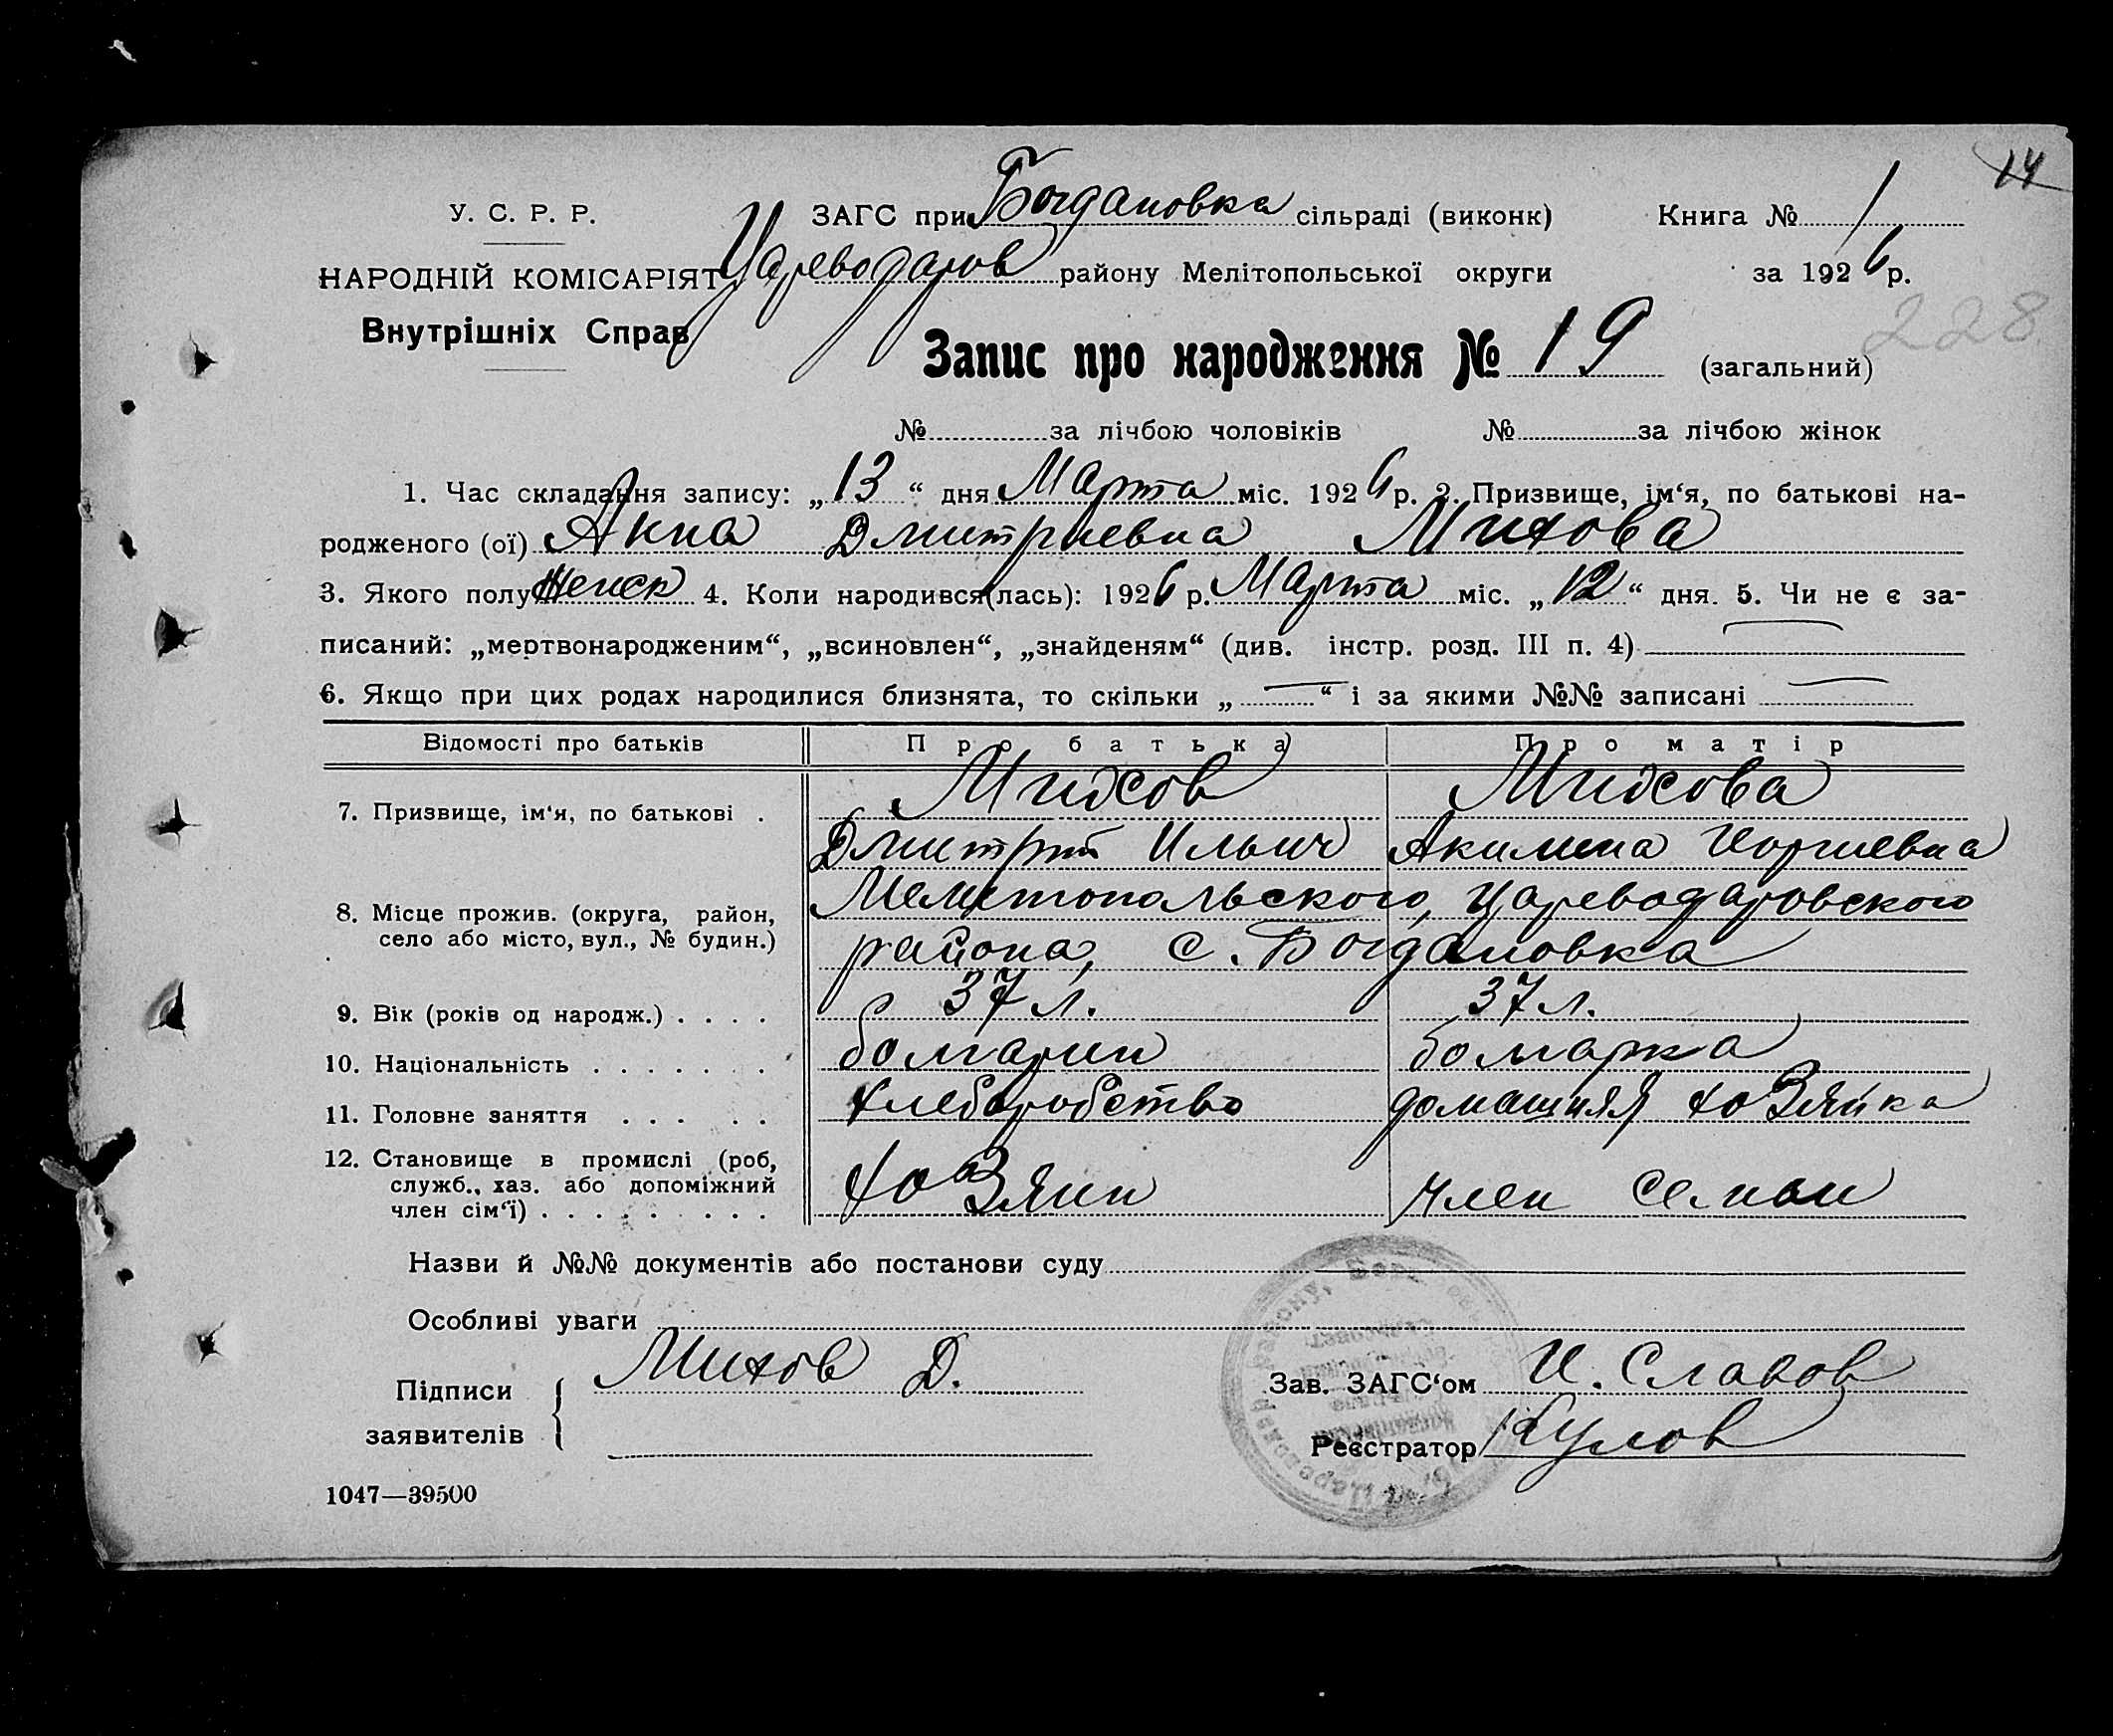 14
У. С. Р. Р.
ЗАГС при Богдановка сільраді (виконк)
Книга № 1
НАРОДНІЙ КОМІСАРІЯТ
Цареводаров району Мелітопольської округи
за 1926 р.
Внутрішніх Справ
228
Запис про народження № 19 (загальний)
№ за лічбою чоловіків № за лічбою жінок
1. Час складання запису: „13“ дня Марта міс. 1926 р. 2. Призвище, ім‘я, по батькові на-
родженого (ої) Анна Дмитриевна Михова
3. Якого полу Женск 4. Коли народився(лась): 1926 р. Марта міс. „12“ дня. 5. Чи не є за-
писаний: „мертвонародженим“, „всиновлен“, „знайденям“ (див. інстр. розд. III п. 4)
6. Якщо при цих родах народилися близнята, то скільки „—“ і за якими №№ записані —
Відомості про батьків
Про батька
Про матір
7. Призвище, ім‘я, по батькові .
Михов
Михова
Дмитрий Ильич
Акилина
8. Місце прожив. (округа, район,
село або місто, вул., № будин.)
Мелитопольского, Цареводаровского
района, с. Богдановка
9. Вік (років од народж.) . . . .
37 л.
37 л.
10. Національність . . . . . . .
болгарин
болгарка
11. Головне заняття . . . . .
хлеборобство
домашняя хозяйка
12. Становище в промислі (роб,
служб., хаз. або допоміжний
член сім‘ї) . . . . . . . . .
хозяин
член семьи
Назви й №№ документів або постанови суду
Особливі уваги
Підписи
заявителів
Михов Д.
Зав. ЗАГС‘ом И. Славов
Реєстратор Кулов
1047—39500